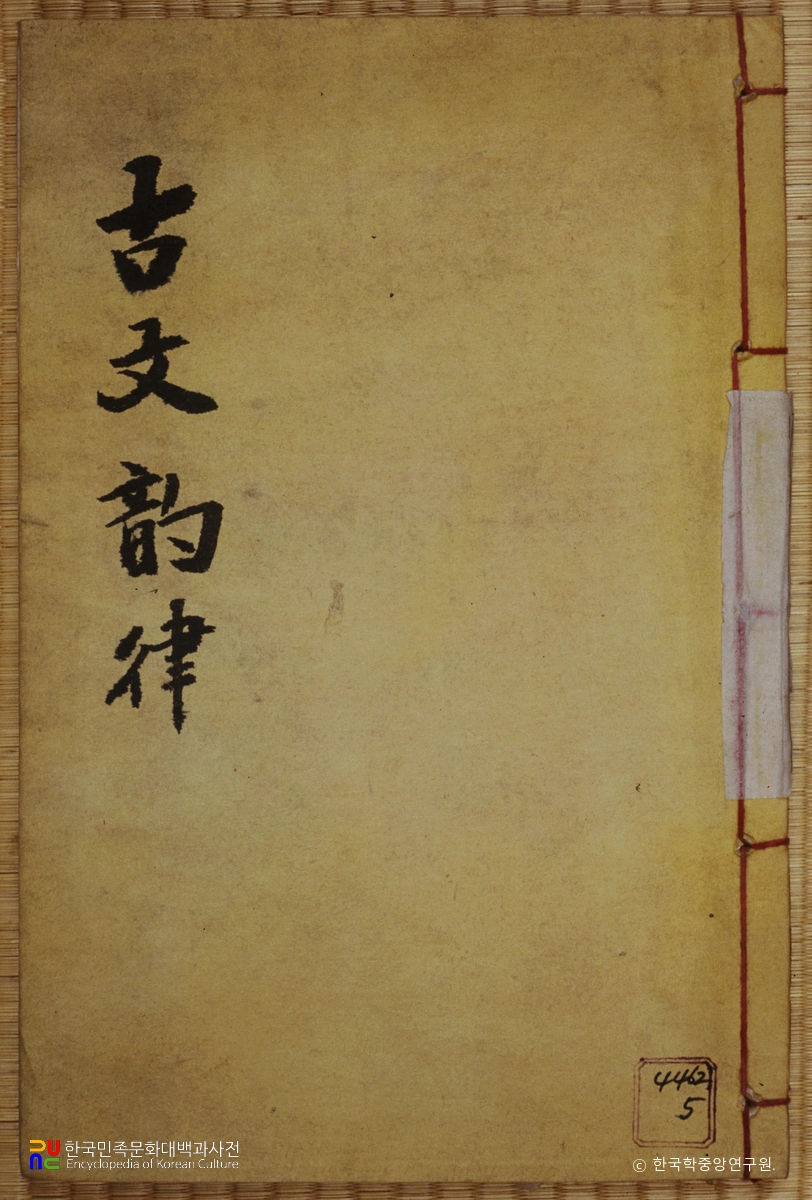 古文韵律
4462
5
한국민족문화대백과사전
Encyclopedia of Korean Culture
© 한국학중앙연구원.